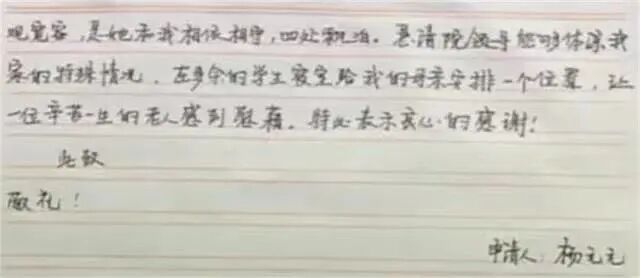 是她和我相依相守，四处飘泊。恳请院领导能够体谅我
家的特殊情况，在多余的学生寝室给我的母亲安排一个位置，让
一位辛苦一生的老人感到慰藉。特此表示衷心的感谢！
此致
敬礼！
申请人：杨元元